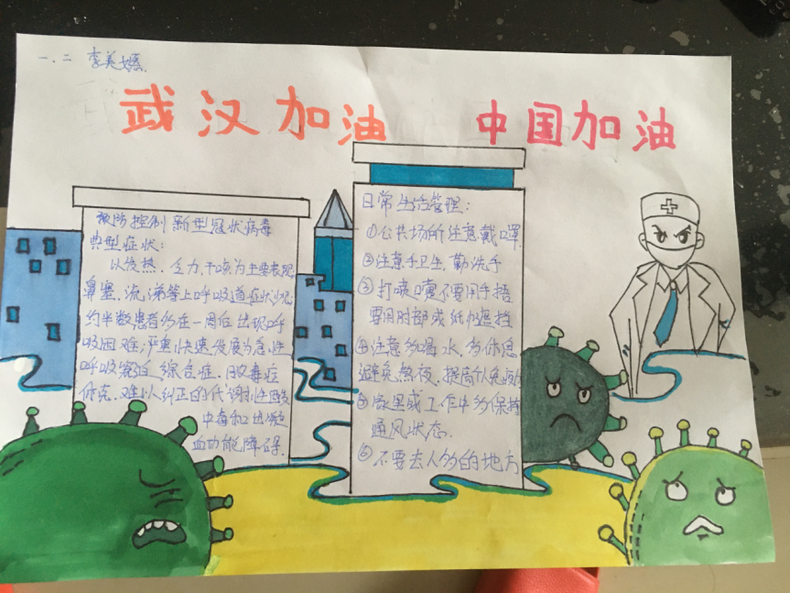 一.二 李美嫣
武汉加油 中国加油
预防控制新型冠状病毒
典型症状:
以发热、乏力、干咳为主要表现
鼻塞、流涕等上呼吸道症状少见
约半数患者多在一周后出现呼
吸困难,严重快速发展为急性
呼吸窘迫综合征、脓毒症
休克、难以纠正的代谢性酸
中毒和出凝
血功能障碍.
日常生活管理:
①公共场所注意戴口罩
②注意手卫生,勤洗手
③打喷嚏不要用手捂
要用肘部或纸巾遮挡
④注意多喝水,多休息
避免熬夜,提高个人免疫力
⑤家里或工作中多保持
通风状态.
⑥不要去人多的地方